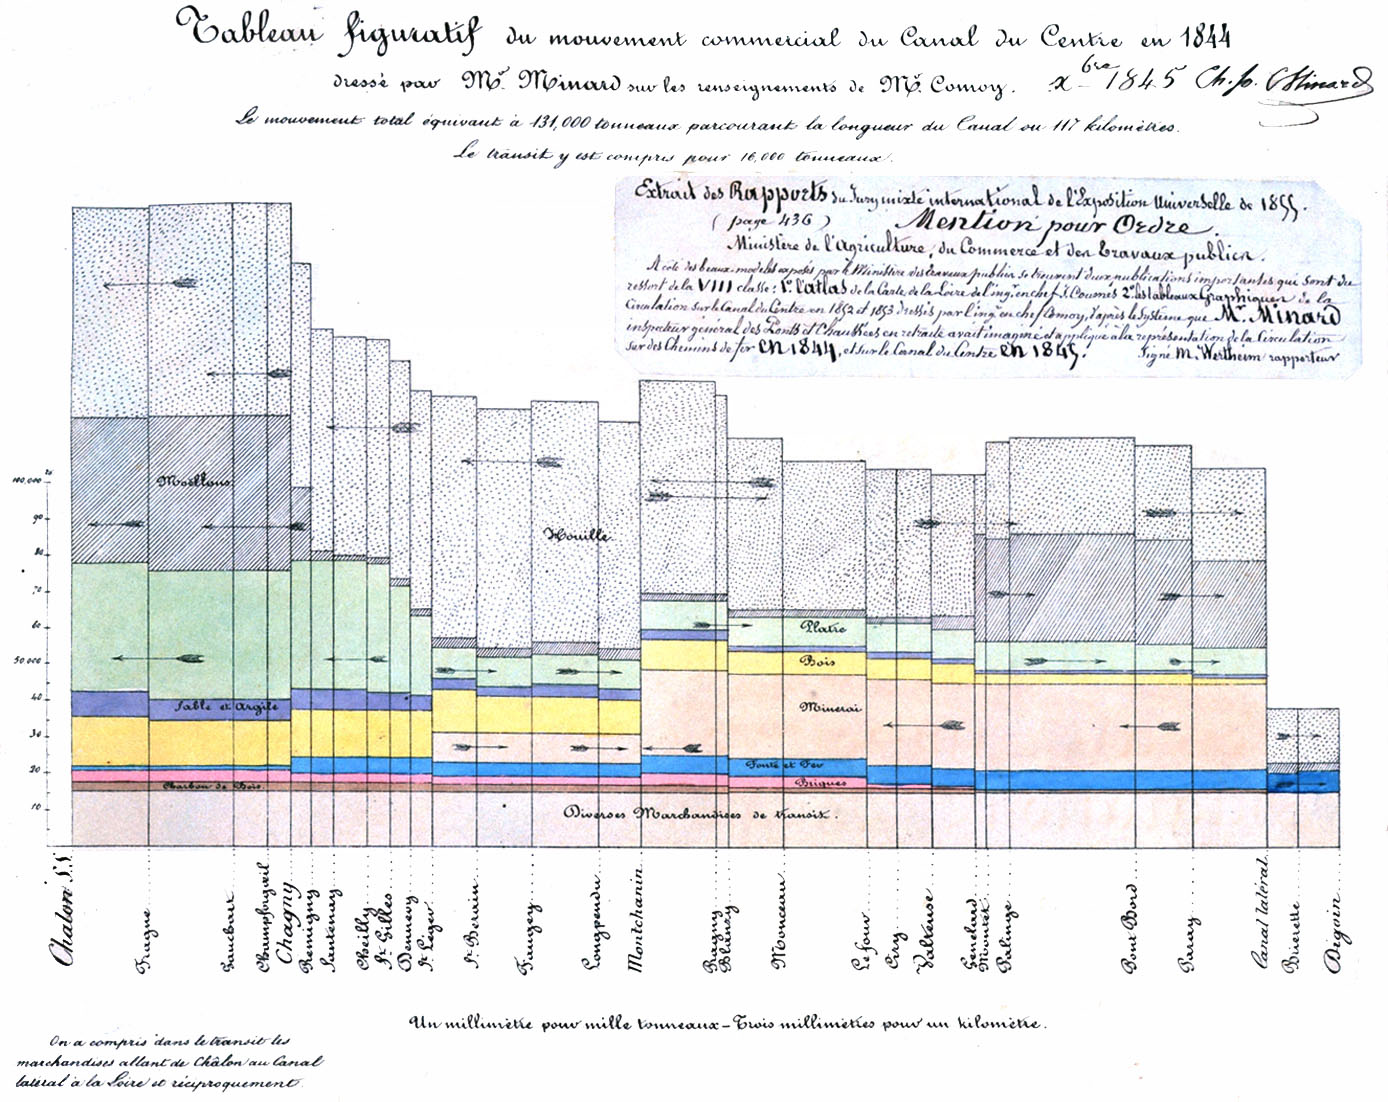 Tableau figuratif du mouvement commercial du Canal du Centre en 1844
dressé par Mr. Minard sur les renseignements de Mr. Comoy. xbre 1845 Ch. Jo. Minard
Le mouvement total équivaut à 131,000 tonneaux parcourant la longueur du Canal ou 117 kilomètres.
Le transit y est compris pour 16,000 tonneaux.
Extrait des Rapports du Jury mixte international de l'Exposition Universelle de 1855.
( page 436 ) Mention pour Ordre.
Ministère de l'Agriculture, du Commerce et des Travaux publics.
A côté des beaux modèles exposés par le Ministère des travaux publics se trouvent deux publications importantes qui sont du
ressort de la VIII classe : 1º l'atlas de la Carte de la Loire de l'ingr en chef Coumes 2º les tableaux Graphiques de la
Circulation sur le Canal du Centre en 1852 et 1853 dressés par l'ingr en chef Comoy, d'après le système que Mr. Minard
inspecteur général des Ponts et Chaussées en retraite avait imaginé et appliqué à la représentation de la Circulation
sur des Chemins de fer en 1844, et sur le Canal du Centre en 1845. Signé M. Wertheim rapporteur
Moëllons
Houille
Plâtre
Bois
Sable et Argile
Minerai
Fonte et Fer
Briques
Charbon de Bois
Diverses Marchandises de transit.
100,000 tx
90
80
70
60
50,000
40
30
20
10
Chalon S.S.
Fragne
Gauboux
Champforgueil
Chagny
Remigny
Santenay
Cheilly
St. Gilles
Dennevy
St. Léger
St. Berain
Fangey
Longpendu
Montchanin
Ragny
Blanzy
Monceau
Lefour
Ciry
Valteuse
Genelard
Montet
Palinge
Pont Bord
Paray
Canal latéral
Brierette
Digoin
Un millimètre pour mille tonneaux – Trois millimètres pour un kilomètre.
On a compris dans le transit les
marchandises allant de Châlon au Canal
latéral à la Loire et réciproquement.